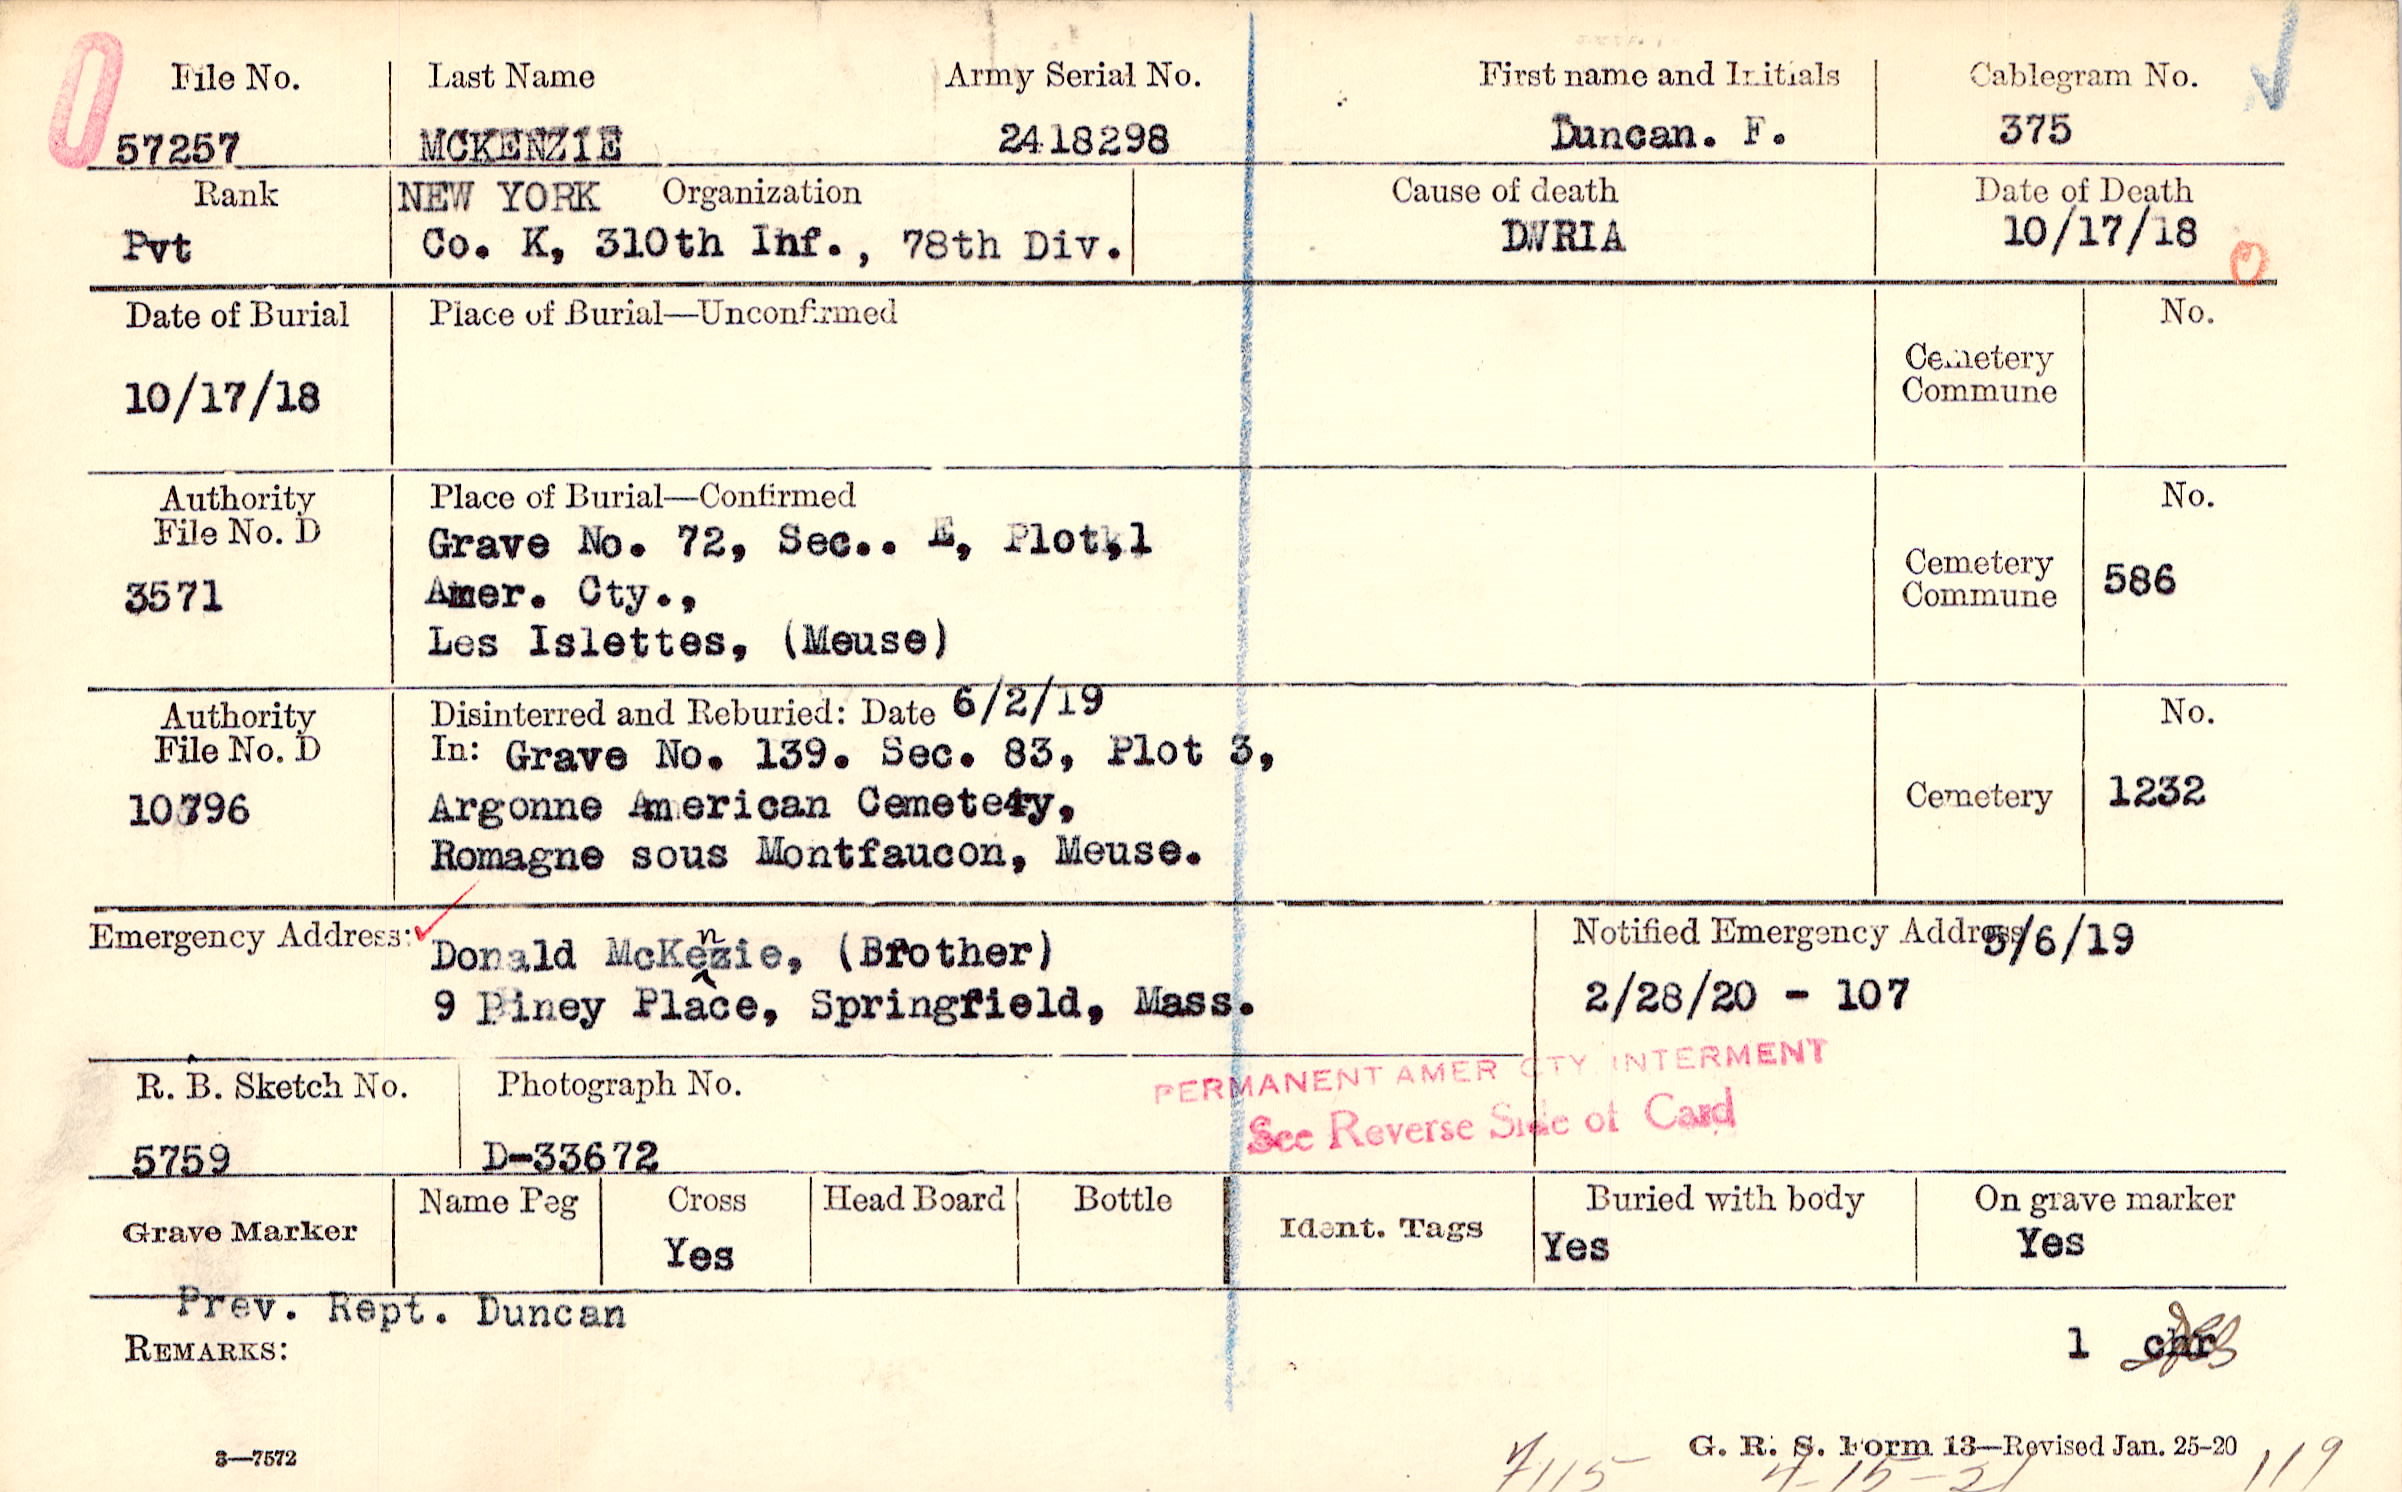 File No. Last Name Army Serial No. First name and Initials Cablegram No.
57257 MCKENZIE 2418298 Duncan. F. 375
Rank NEW YORK Organization Cause of death Date of Death
Pvt Co. K, 310th Inf., 78th Div. DWRIA 10/17/18
Date of Burial Place of Burial—Unconfirmed No.
Cemetery
Commune
10/17/18
Authority Place of Burial—Confirmed No.
File No. D
Grave No. 72, Sec.. E, Plot,1
3571 Amer. Cty., Cemetery
Commune 586
Les Islettes, (Meuse)
Authority Disinterred and Reburied: Date 6/2/19 No.
File No. D In: Grave No. 139. Sec. 83, Plot 3,
10796 Argonne American Cemetery, Cemetery 1232
Romagne sous Montfaucon, Meuse.
Emergency Address: Donald McKenzie, (Brother) Notified Emergency Address 5/6/19
9 Piney Place, Springfield, Mass. 2/28/20 - 107
PERMANENT AMER CTY INTERMENT
R. B. Sketch No. Photograph No. See Reverse Side of Card
5759 D-33672
Grave Marker Name Peg Cross Head Board Bottle Ident. Tags Buried with body On grave marker
Yes Yes Yes
Prev. Rept. Duncan
REMARKS: 1 chr
3—7572 G. R. S. Form 13—Revised Jan. 25-20
7115 4-15-21 119